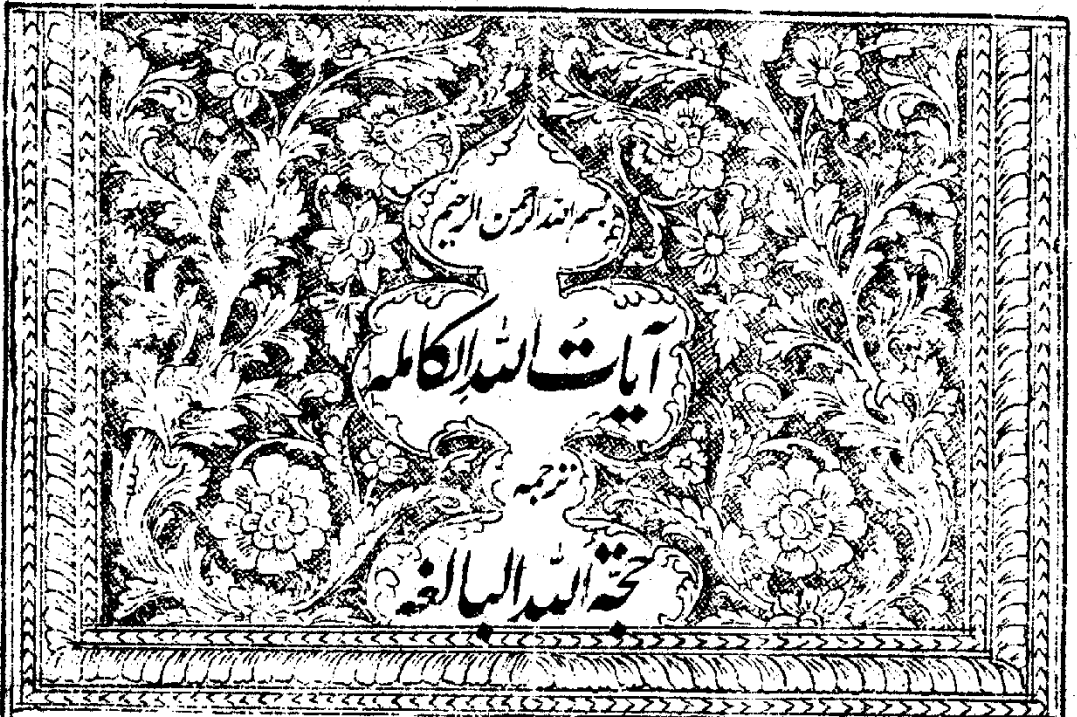 بسم اللہ الرحمن الرحیم
آیات اللہ الکاملہ
ترجمہ
حجۃ اللہ البالغہ